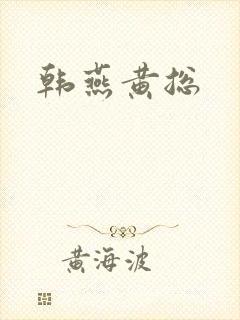 韩燕黄总
黄海波